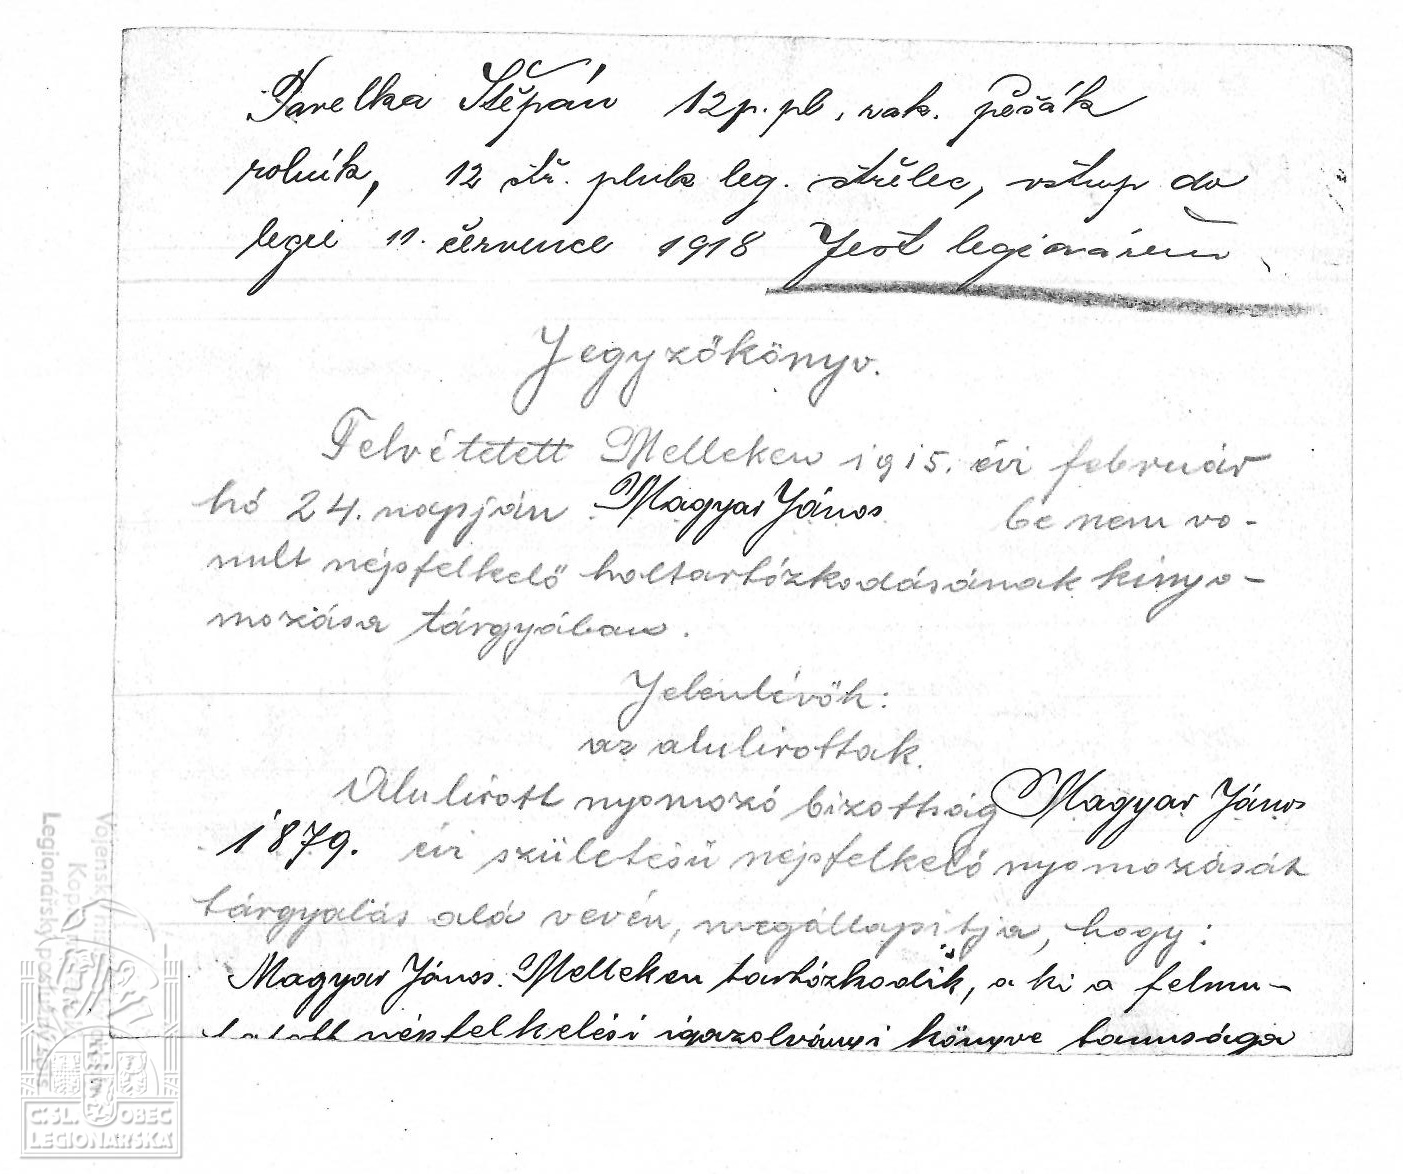 Pavelka Štěpán 12 p. pl, rak. pěšák
rolník, 12 stř. pluk leg. střelec, vstup do
legií 11. července 1918 Jest legionářem
Jegyzőkönyv.
Felvétetett Melleken 1915. évi február
hó 24. napján Magyar János be nem vo-
nult népfelkelő holtartózkodásának kinyo-
mozása tárgyában.
Jelenlévők:
az alulirottak.
Alulirott nyomozó bizottság Magyar János
1879. évi születésű népfelkelő nyomozását
tárgyalás alá vevén, megállapitja, hogy:
Magyar János Melleken tartózkodik, a ki a felmu-
tatott népfelkelési igazolványi könyve tanusága
Vojenský
Kopie
Legionářský
Č.SL. OBEC
LEGIONÁŘSKÁ